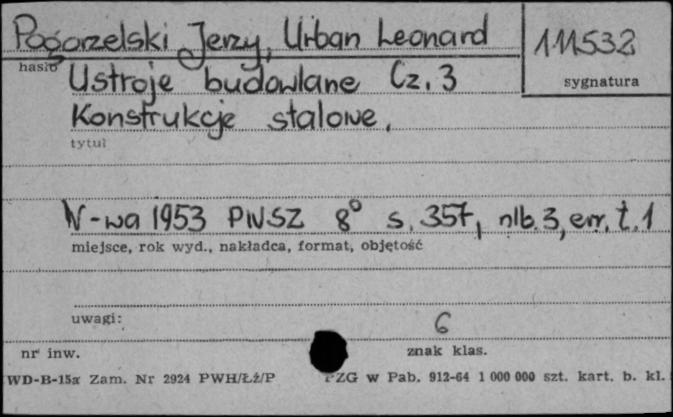 Pogorzelski Jerzy, Urban Leonard
111532
hasło
sygnatura
Ustroje budowlane Cz. 3
Konstrukcje stalowe.
tytuł
W-wa 1953 PWSZ 8° s. 357, nlb. 3, err. t. 1
miejsce, rok wyd., nakładca, format, objętość
uwagi:
6
nr inw.
znak klas.
WD-B-15a Zam. Nr 2924 PWH/Łź/P PZG w Pab. 912-64 1 000 000 szt. kart. b. kl.